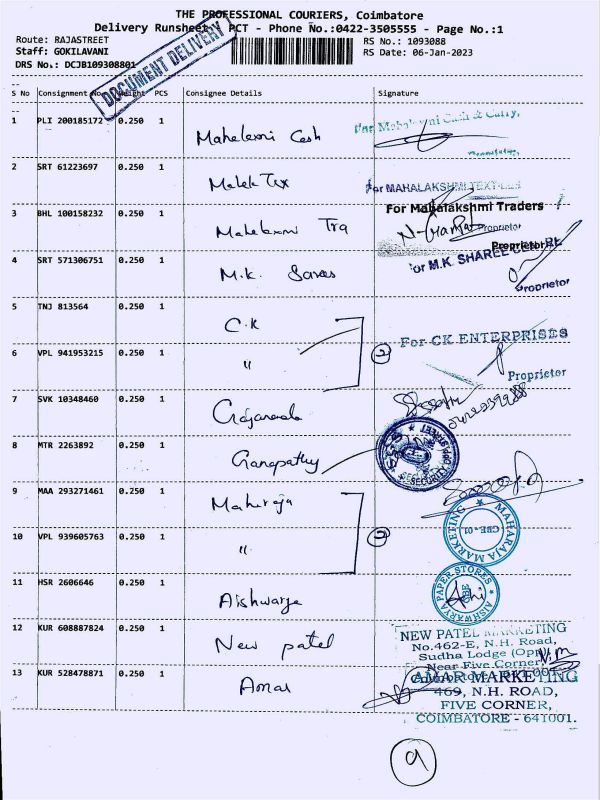 THE PROFESSIONAL COURIERS, Coimbatore
Delivery Runsheet PCT - Phone No.:0422-3505555 - Page No.:1
Route: RAJASTREET
RS No.: 1093088
Staff: GOKILAVANI
RS Date: 06-Jan-2023
DRS No.: DCJB109308801
DOCUMENT DELIVERY
S No Consignment No. Weight PCS Consignee Details Signature
1 PLI 200185172 0.250 1 Mahalaxmi Cash
For Mahalaxmi Cash & Curry,
2 SRT 61223697 0.250 1 Malek Tex
For MAHALAKSHMI TEXTILES
3 BHL 100158232 0.250 1 Mahalaxmi Tra
For Mahalakshmi Traders
Proprietor
Proprietor
4 SRT 571306751 0.250 1 M.K. Sarees
For M.K. SHAREE CENTRE
Proprietor
5 TNJ 813564 0.250 1 C.K
For CK ENTERPRISES
6 VPL 941953215 0.250 1 "
2
Proprietor
7 SVK 10348460 0.250 1
8 MTR 2263892 0.250 1 Ganapathy
SECURITY
9 MAA 293271461 0.250 1 Maharaja
MAHARAJA MARKETING
CBE-01
10 VPL 939605763 0.250 1 "
2
11 HSR 2606646 0.250 1 Aishwarya
AISHWARYA PAPER STORES
12 KUR 608887824 0.250 1 New patel
NEW PATEL MARKETING
No.462-E, N.H. Road,
Sudha Lodge (Opp)
Near Five Corner
13 KUR 528478871 0.250 1 Amar
AMAR MARKETING
469, N.H. ROAD,
FIVE CORNER,
COIMBATORE - 641001.
9